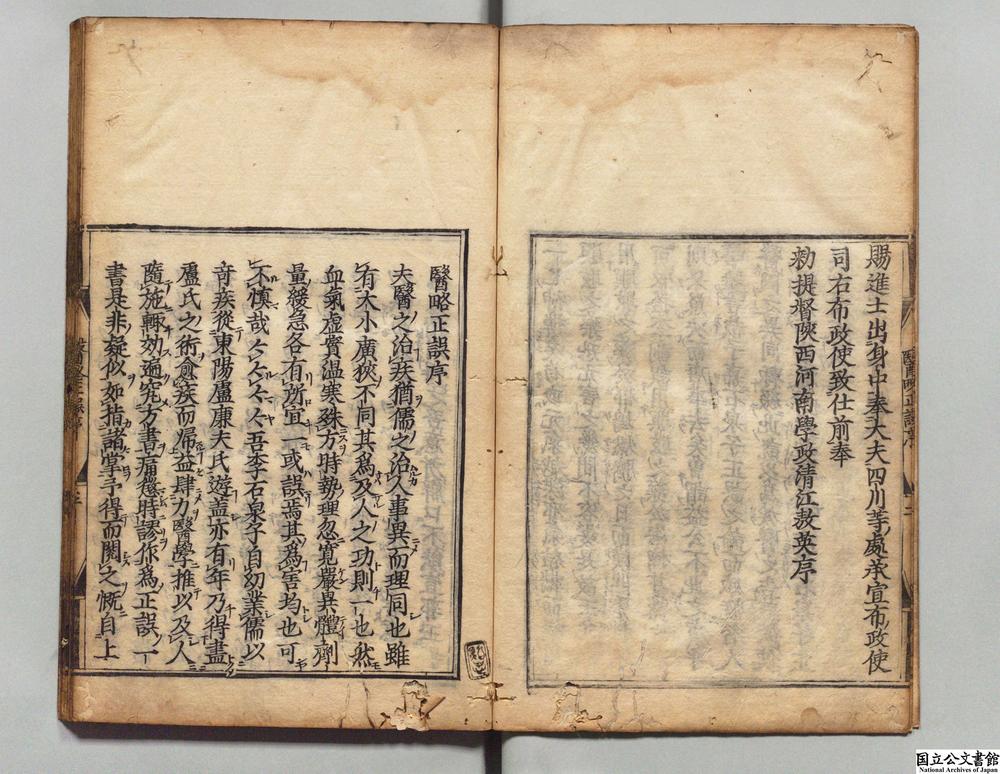 賜進士出身中奉大夫四川等處承宣布政使
司右布政使致仕前奉
勑提督陝西河南學政清江敖英序
醫略正誤序
夫醫之治疾猶儒之治人事異而理同也雖
有大小廣狹不同其爲及人之功則一也然
血氣虛實溫寒殊方時勢理忽寬嚴異體劑
量緩急各有所宜一或誤焉其爲害均也可
不愼哉今吾李石泉子自幼業儒以
奇疾從東陽盧康夫氏遊盖亦有年乃得盡
盧氏之術愈疾而歸益肆力醫學推以及人
隨施輒効廼究方書痛懲時謬作爲正誤一
書是非疑似如指諸掌予得而閱之慨自上
国立公文書館
National Archives of Japan